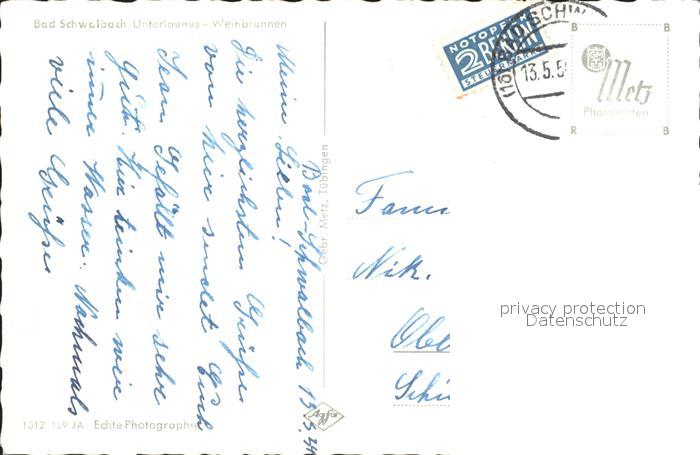 Bad Schwalbach Untertaunus – Weinbrunnen
Bad-Schwalbach 13.5.
Meine Lieben!
Die herzlichsten Grüße
von hier sendet Euch
Jean. Gefällt mir sehr
gut. Hier trinken wir
immer Wasser. Nochmals
viele Grüße
1012 129 JA Echte Photographie
Gebr. Metz, Tübingen
Agfa
NOTOPFER
2 BERLIN
STEUERMARKE
13.5.5
B B
Metz
Photokarten
R B
Fami
Nik.
Obe
Schi
privacy protection
Datenschutz